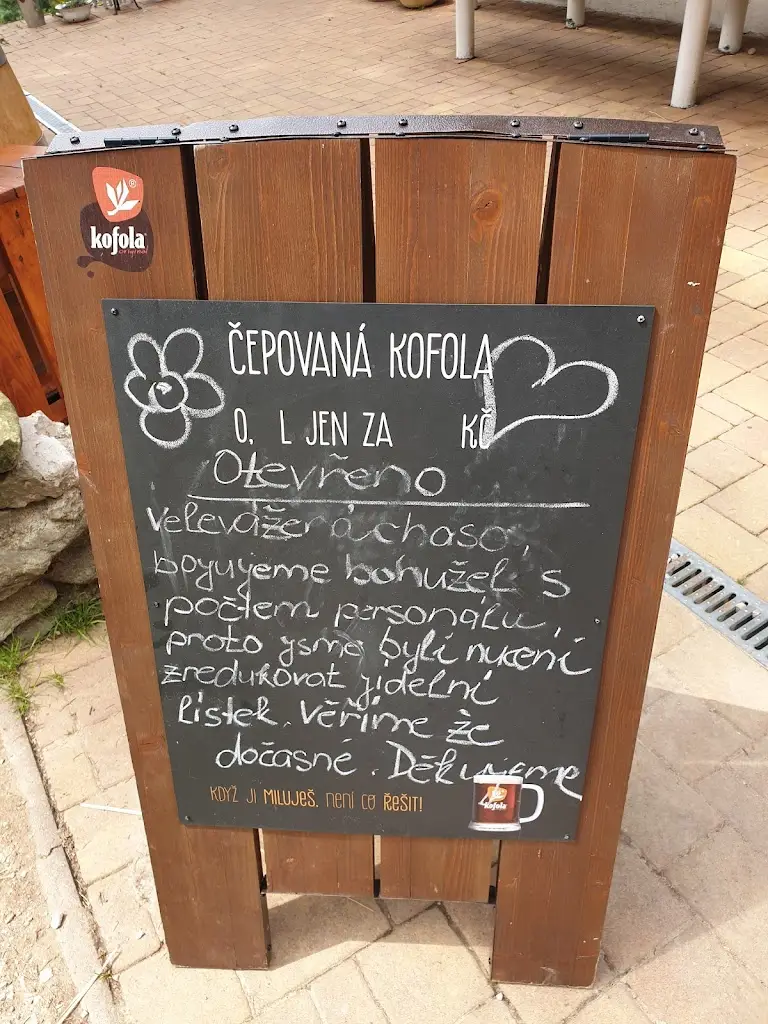 kofola
ČEPOVANÁ KOFOLA
0, L JEN ZA KČ
Otevřeno
Velevážená chaso,
bojujeme bohužel s
počtem personálu,
proto jsme byli nuceni
zredukovat jídelní
lístek. Věříme že
dočasně. Děkujeme
KDYŽ JI MILUJEŠ, není co ŘEŠIT!
kofola